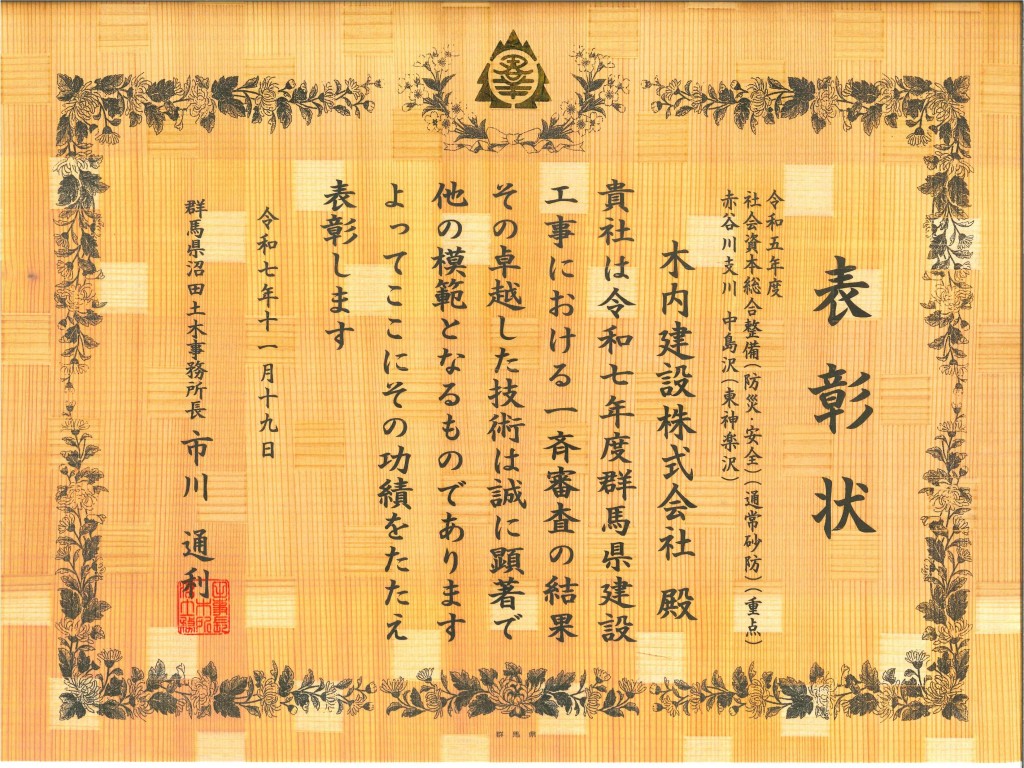 表彰状
令和五年度
社会資本総合整備(防災・安全)(通常砂防)(重点)
赤谷川支川 中島沢(東神楽沢)
木内建設株式会社 殿
貴社は令和七年度群馬県建設
工事における一斉審査の結果
その卓越した技術は誠に顕著で
他の模範となるものであります
よってここにその功績をたたえ
表彰します
令和七年十一月十九日
群馬県沼田土木事務所長 市川 通利
群馬県